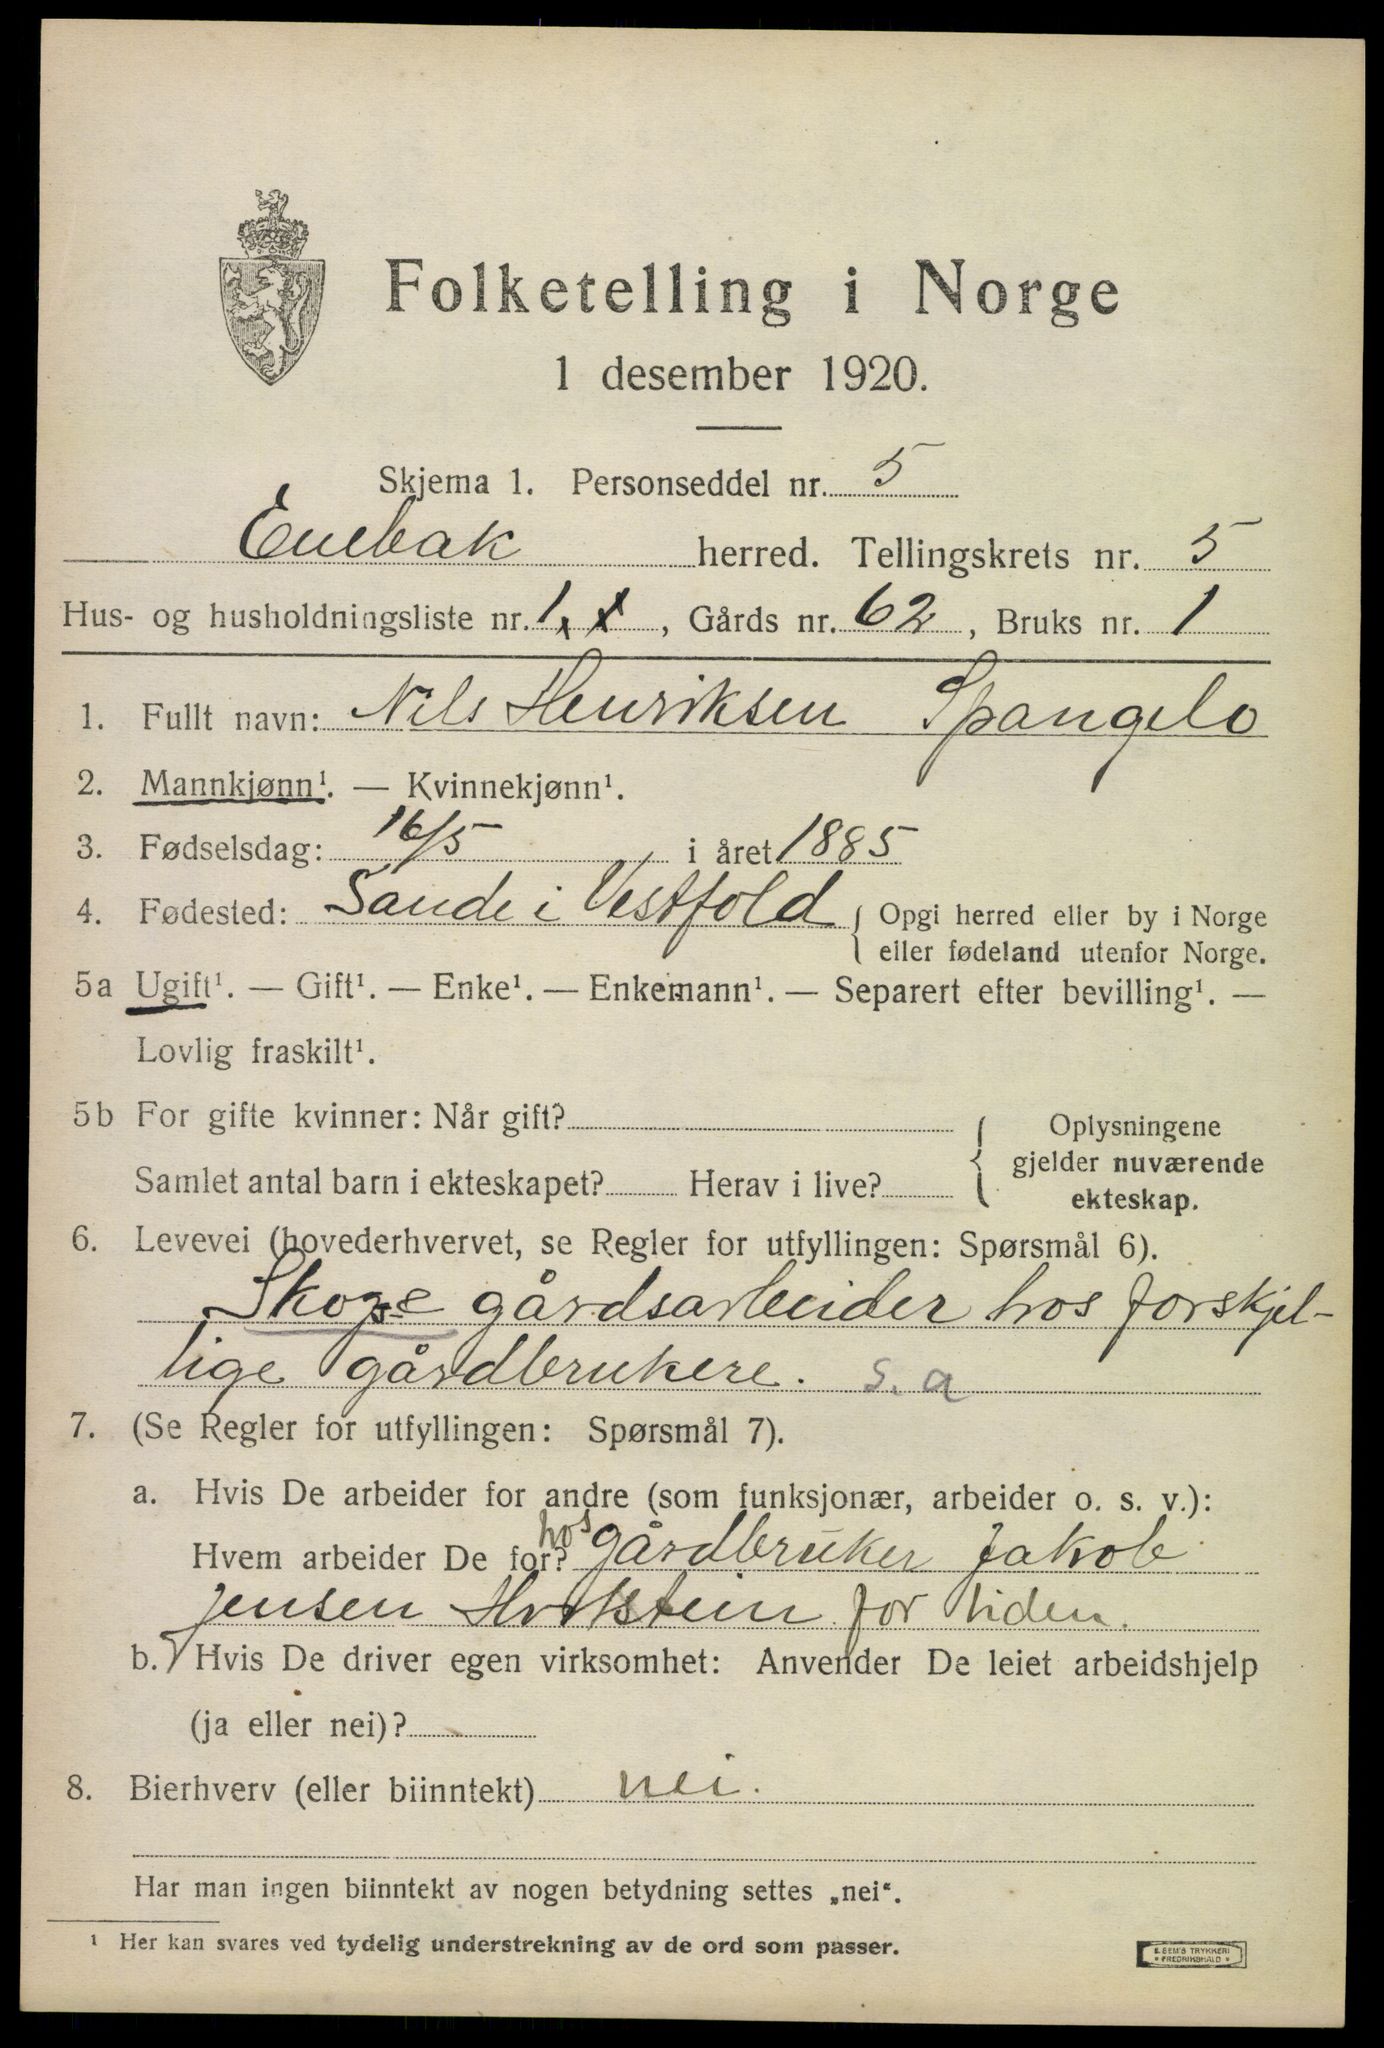 Folketelling i Norge
1 desember 1920.
Skjema 1. Personseddel nr. 5
Enebak herred. Tellingskrets nr. 5
Hus- og husholdningsliste nr. 1, 1, Gårds nr. 62, Bruks nr. 1
1. Fullt navn: Nils Henriksen Spangelo
2. Mannkjønn¹. — Kvinnekjønn¹.
3. Fødselsdag: 16/5 i året 1885
4. Fødested: Sande i Vestfold { Opgi herred eller by i Norge
eller fødeland utenfor Norge.
5a Ugift¹. — Gift¹. — Enke¹. — Enkemann¹. — Separert efter bevilling¹. —
Lovlig fraskilt¹.
5b For gifte kvinner: Når gift?
Samlet antal barn i ekteskapet? Herav i live?
Oplysningene
gjelder nuværende
ekteskap.
6. Levevei (hovederhvervet, se Regler for utfyllingen: Spørsmål 6).
Skogs- gårdsarbeider hos forskjel-
lige gårdbrukere. s.a
7. (Se Regler for utfyllingen: Spørsmål 7).
a. Hvis De arbeider for andre (som funksjonær, arbeider o. s. v.):
Hvem arbeider De for? hos gårdbruker Jakob
Jensen for tiden.
b. Hvis De driver egen virksomhet: Anvender De leiet arbeidshjelp
(ja eller nei)?
8. Bierhverv (eller biinntekt) nei.
Har man ingen biinntekt av nogen betydning settes „nei“.
¹ Her kan svares ved tydelig understrekning av de ord som passer.
E. SEM'S TRYKKERI
* FREDRIKSHALD *